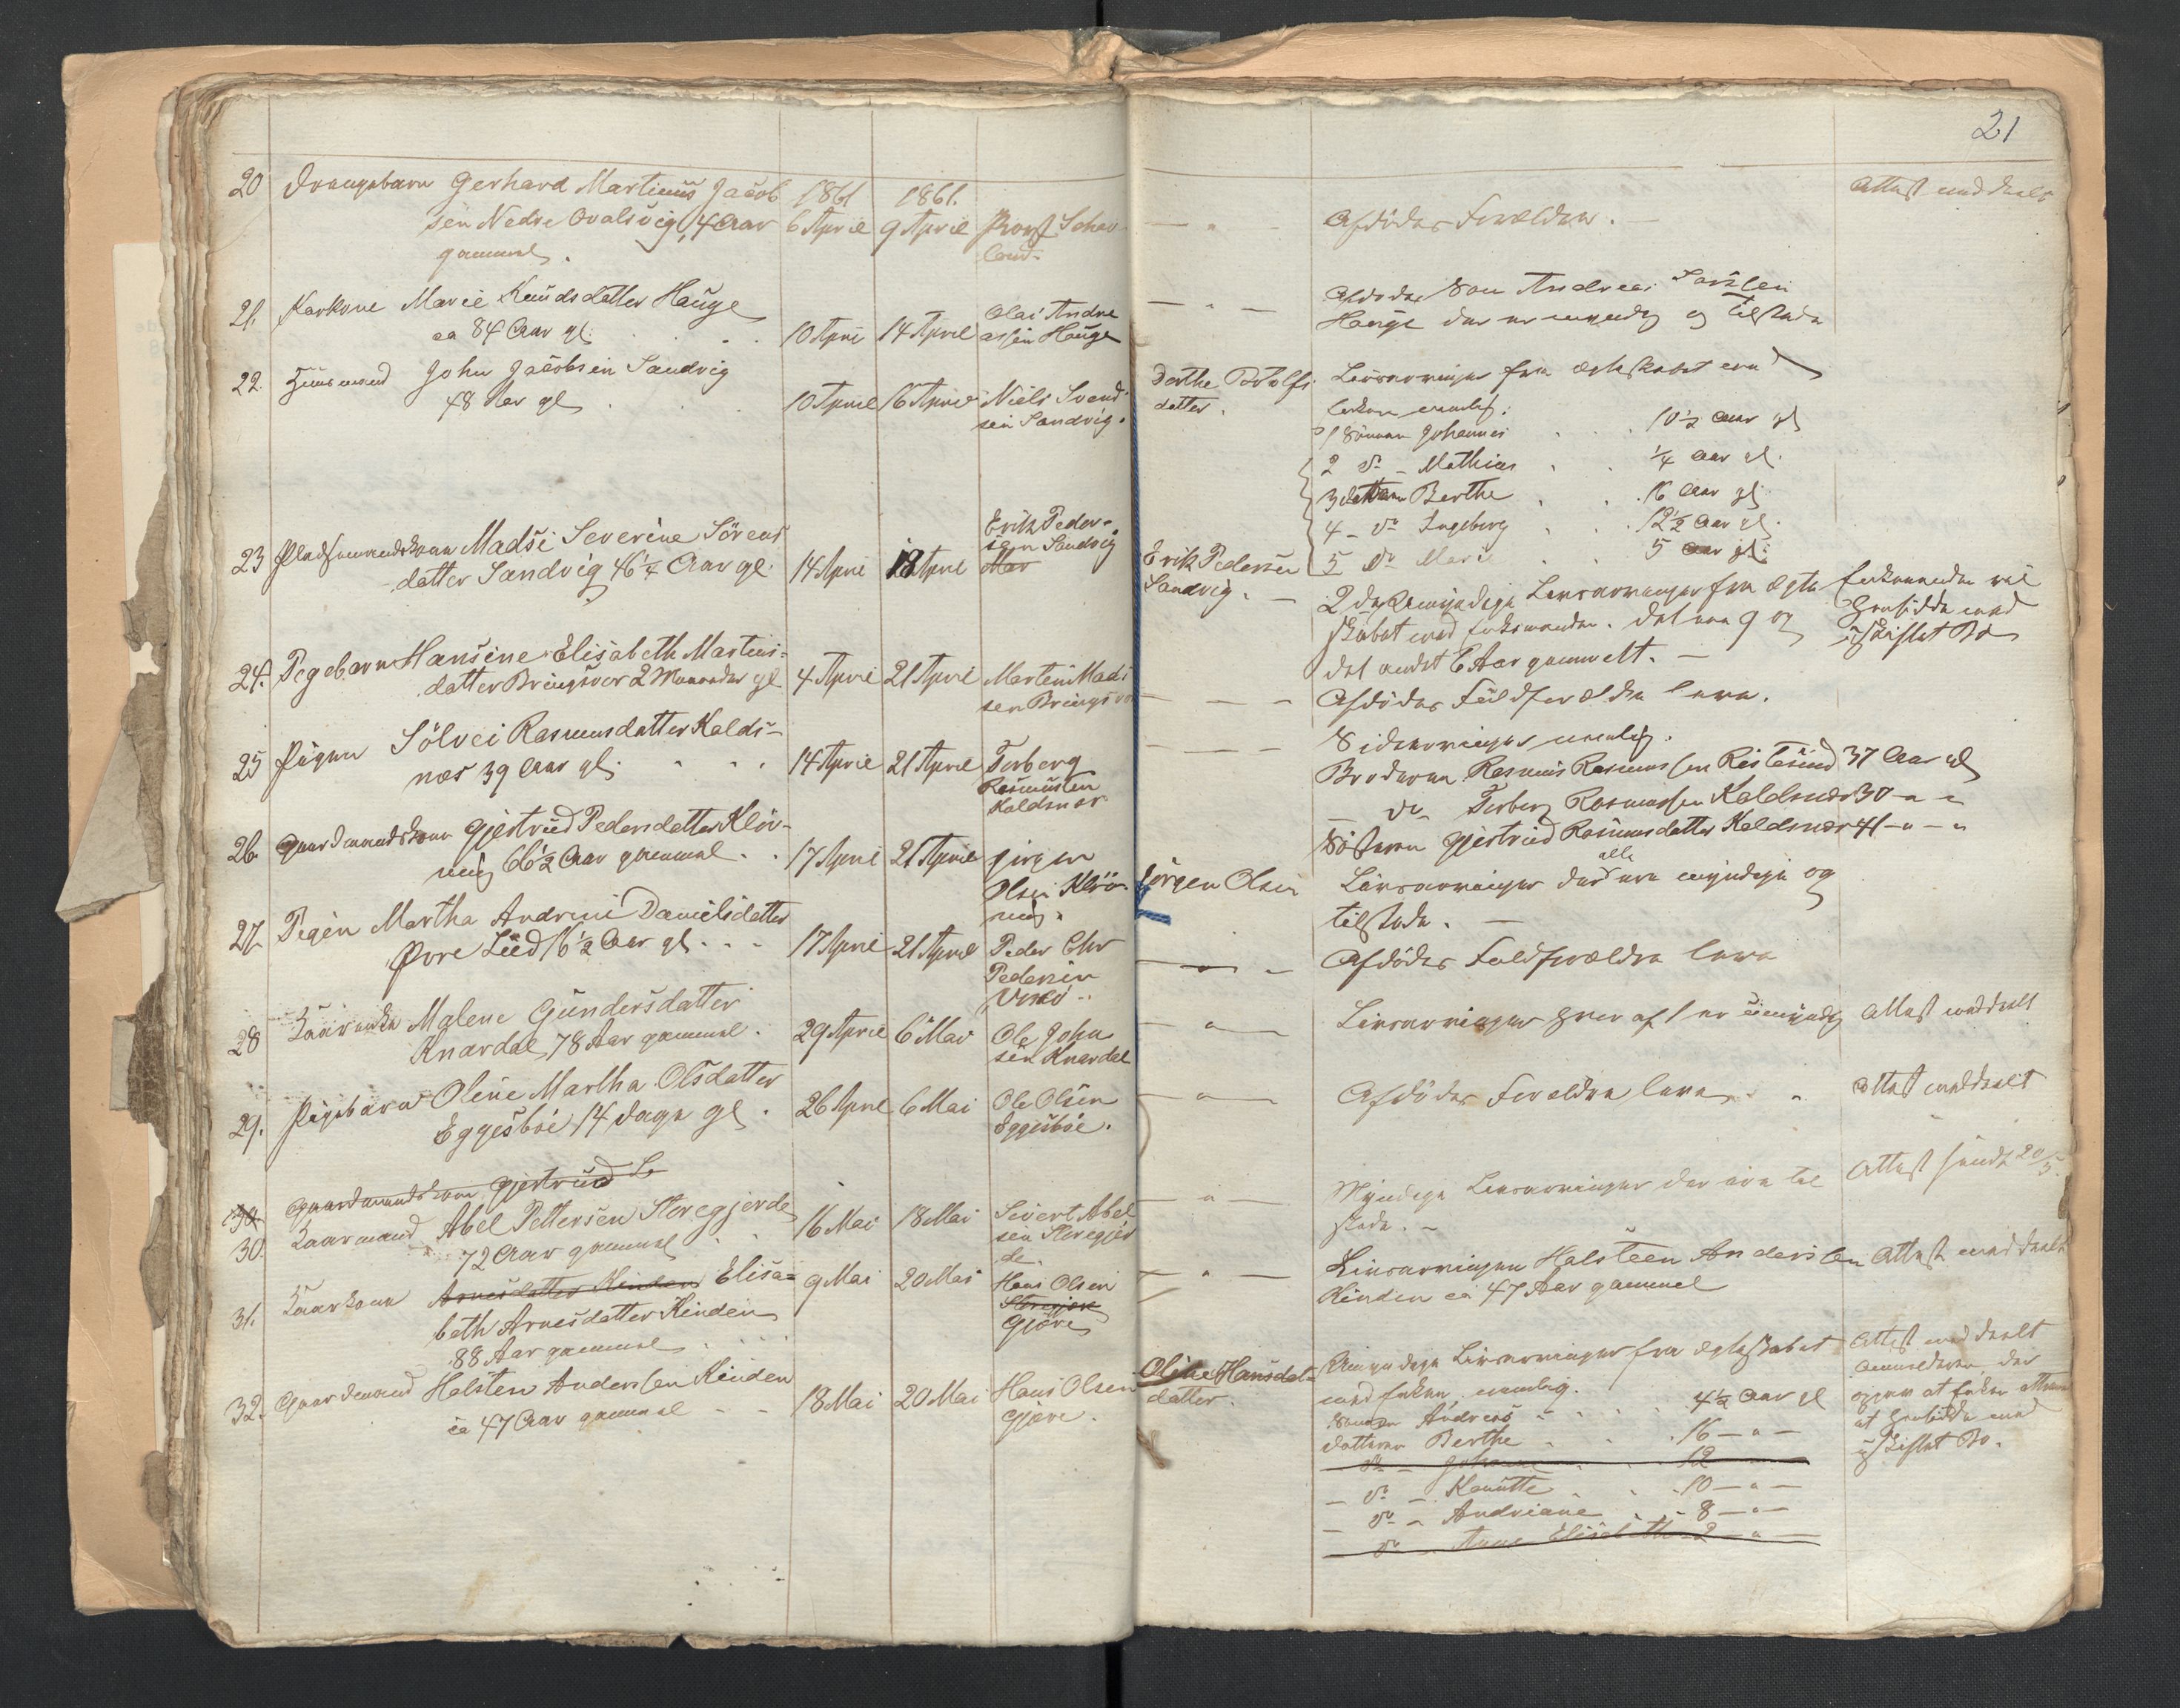 21
20 Drengebarn Gerhard Martinus Jacob 1861 1861.
sen Nedre Ovalsvig, 4 Aar 6 April 9 April
gammel.
Afdödes Forældre.
Attest meddeelt
21. Karkone Marie Knudsdatter Hauge
ca 84 Aar gl. 10 April 14 April
Olai Andre
assen Hauge
Afdödes Sön Andreas Larssen
Hauge der er myndig og tilstede
22. Huusmand John Jacobsen Sandvig
48 Aar gl. 10 April 16 April
Niels Svend
sen Sandvig.
datter.
Livsarvinger fra Ægteskabet med
Enken nemlig:
1 Sönnen Johannes 10½ Aar gl
2 do - Mathias ¼ Aar gl.
3 datteren Berthe 16 Aar gl.
4 - do Ingeberg 12½ Aar gl.
5 do Mari 5 Aar gl.
23 Pladsmandskone Madsi Severine Sörens
datter Sandvig 46¼ Aar gl. 14 April 18 April
Erik Peder-
sen Sandvig
Erik Pedersen
Sandvig.
2 de Umyndige Livsarvinger fra Ægte
skabet med Enkemanden. Det ene 9 og
det andet 6 Aar gammelt.
Enkemanden vil
hensidde med
uskiftet Bo
24. Pigebarn Hansine Elisabeth Martens-
datter Bringsvor 2 Maaneder gl 4 April 21 April
Marten Mads
sen Bringsvor
Afdödes Fuldforældre leve.
25 Pigen Sölvei Rasmusdatter Kalds-
næs 39 Aar gl. 14 April 21 April
Torberg
Rasmussen
Kaldsnæs
Sidearvinger nemlig.
Broderen Rasmus Rasmussen Ristesund 37 Aar gl
do Torberg Rasmussen Kaldsnæs 30 - " -
Sösteren Gjertrud Rasmusdatter Kaldsnæs 41 - " - "
26. Gaardmandskone Gjertrud Pedersdatter Klöv-
ning 66½ Aar gammel. 17 April 21 April
Jörgen
Olsen Klöv-
ning.
Jörgen Olsen
Livsarvinger der alle ere myndige og
tilstede.
27. Pigen Martha Andrine Danielsdatter
Övre Lied 16½ Aar gl. 17 April 21 April
Peder Chr
Pedersen
Afdödes Fuldforældre leve
28 Kaarenke Malene Gundersdatter
Knardal, 78 Aar gammel. 29 April 6 Mai
Ole John
sen Knardal
Livsarvinger hvor af 1 er umyndig
Attest meddeelt
29. Pigebarn Oline Martha Olsdatter
Eggesböe 14 dage gl. 26 April 6 Mai
Ole Olsen
Eggesböe.
Afdödes Forældre leve
Attest meddeelt
30 Gaardmandskone Gjertrud
30. Kaarmand Abel Pettersen Storegjerde
72 Aar gammel 16 Mai 18 Mai
Sivert Abel
sen Storegjer
de
Myndige Livsarvinger der ere til
stede.
Attest sendt 20/5
31. Kaarkone Arnesdatter Kinden Elisa-
beth Arnesdatter Kinden
88 Aar gammel 9 Mai 20 Mai
Hans Olsen
Gjöre
Livsarvingen Halsteen Andersen
Kinden ca 47 Aar gammel
Attest meddeelt
32. Gaardmand Halsten Andersen Kinden
ca 47 Aar gammel 18 Mai 20 Mai
Hans Olsen
Gjöre.
Oline Hansdat-
datter.
Umyndige Livsarvinger fra Ægteskabet
med Enken, nemlig.
Sönnen Andreas 4½ Aar gl
Datteren Berthe 16 - " -
do - Johanne 12
- do - Knutte 10 - " -
- do - Andriane 8 - " -
do Anne Elisabeth 2 - " -
Attest meddeelt
Anmelderen, der
at hensidde med
uskiftet Bo.